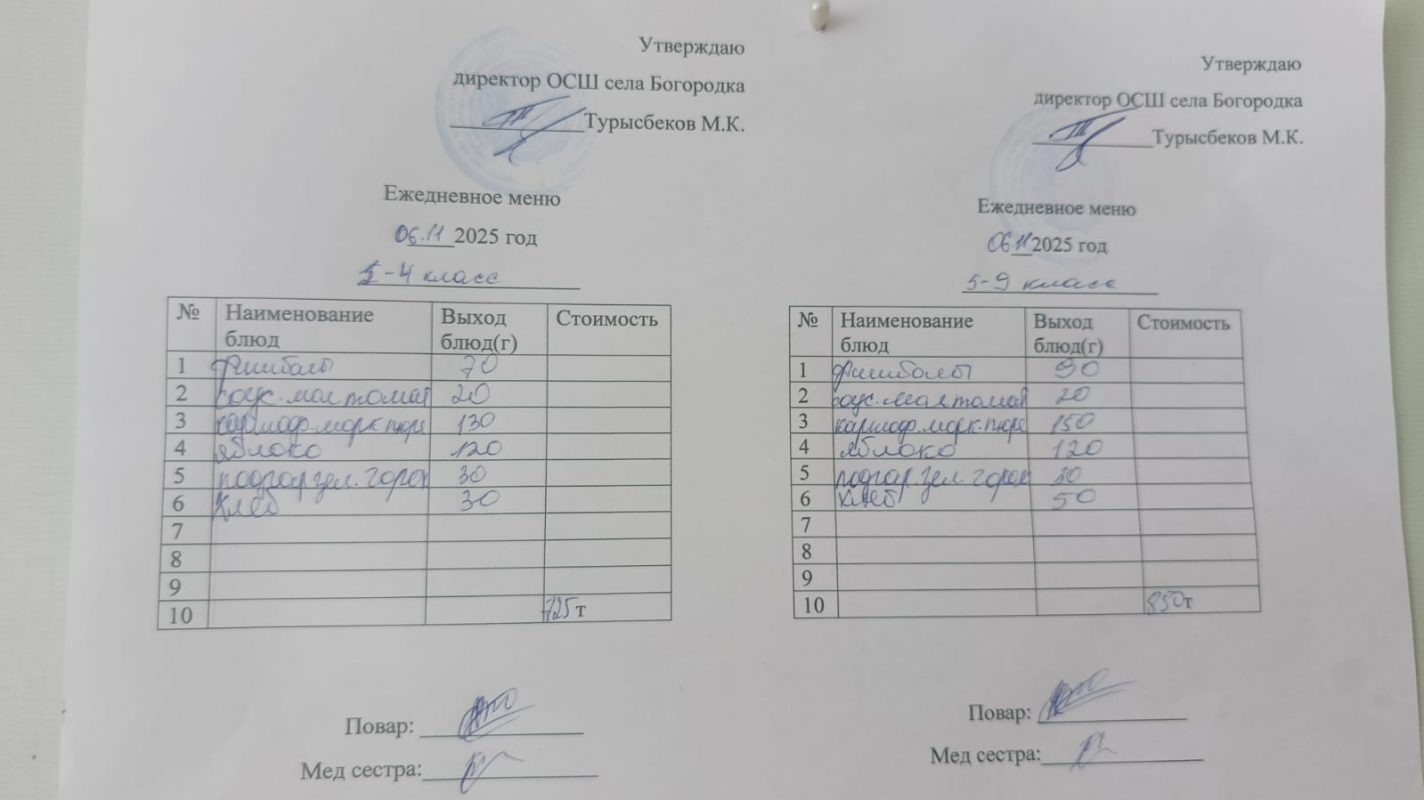 Утверждаю
директор ОСШ села Богородка
Турысбеков М.К.
Ежедневное меню
06.11 2025 год
1-4 класс
№ Наименование блюд Выход блюд(г) Стоимость
1 Фишболы 70
2 соус.мол томат 20
3 картоф.морк пюре 130
4 яблоко 120
5 подгар.зел.горох 30
6 Хлеб 30
7
8
9
10 725 т
Повар:
Мед сестра:
Утверждаю
директор ОСШ села Богородка
Турысбеков М.К.
Ежедневное меню
06 11 2025 год
5-9 класс
№ Наименование блюд Выход блюд(г) Стоимость
1 Фишболы 90
2 соус.мол томат 20
3 картоф.морк.пюре 150
4 яблоко 120
5 подгар.зел.горох
6 Хлеб 50
7
8
9
10 850т
Повар:
Мед сестра: